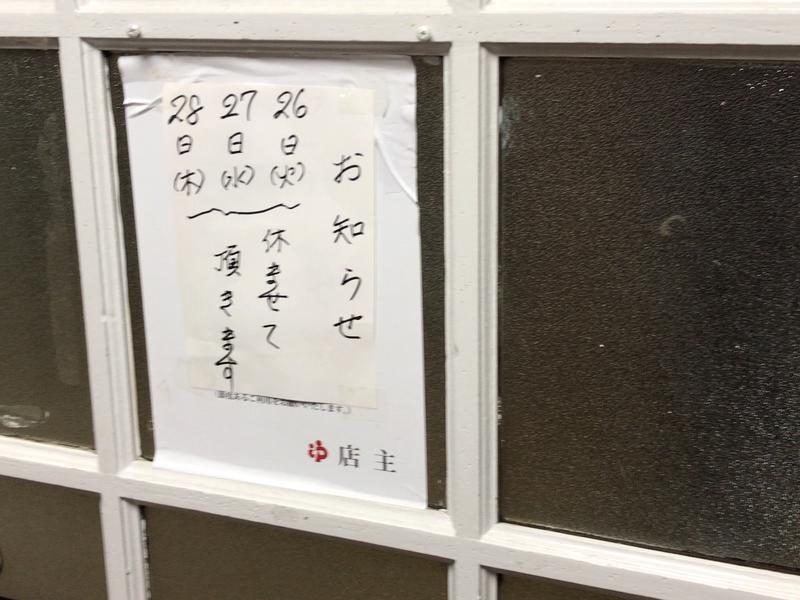 お知らせ
26日(火)
27日(水)
28日(木)
休ませて
頂きます
ゆ 店主